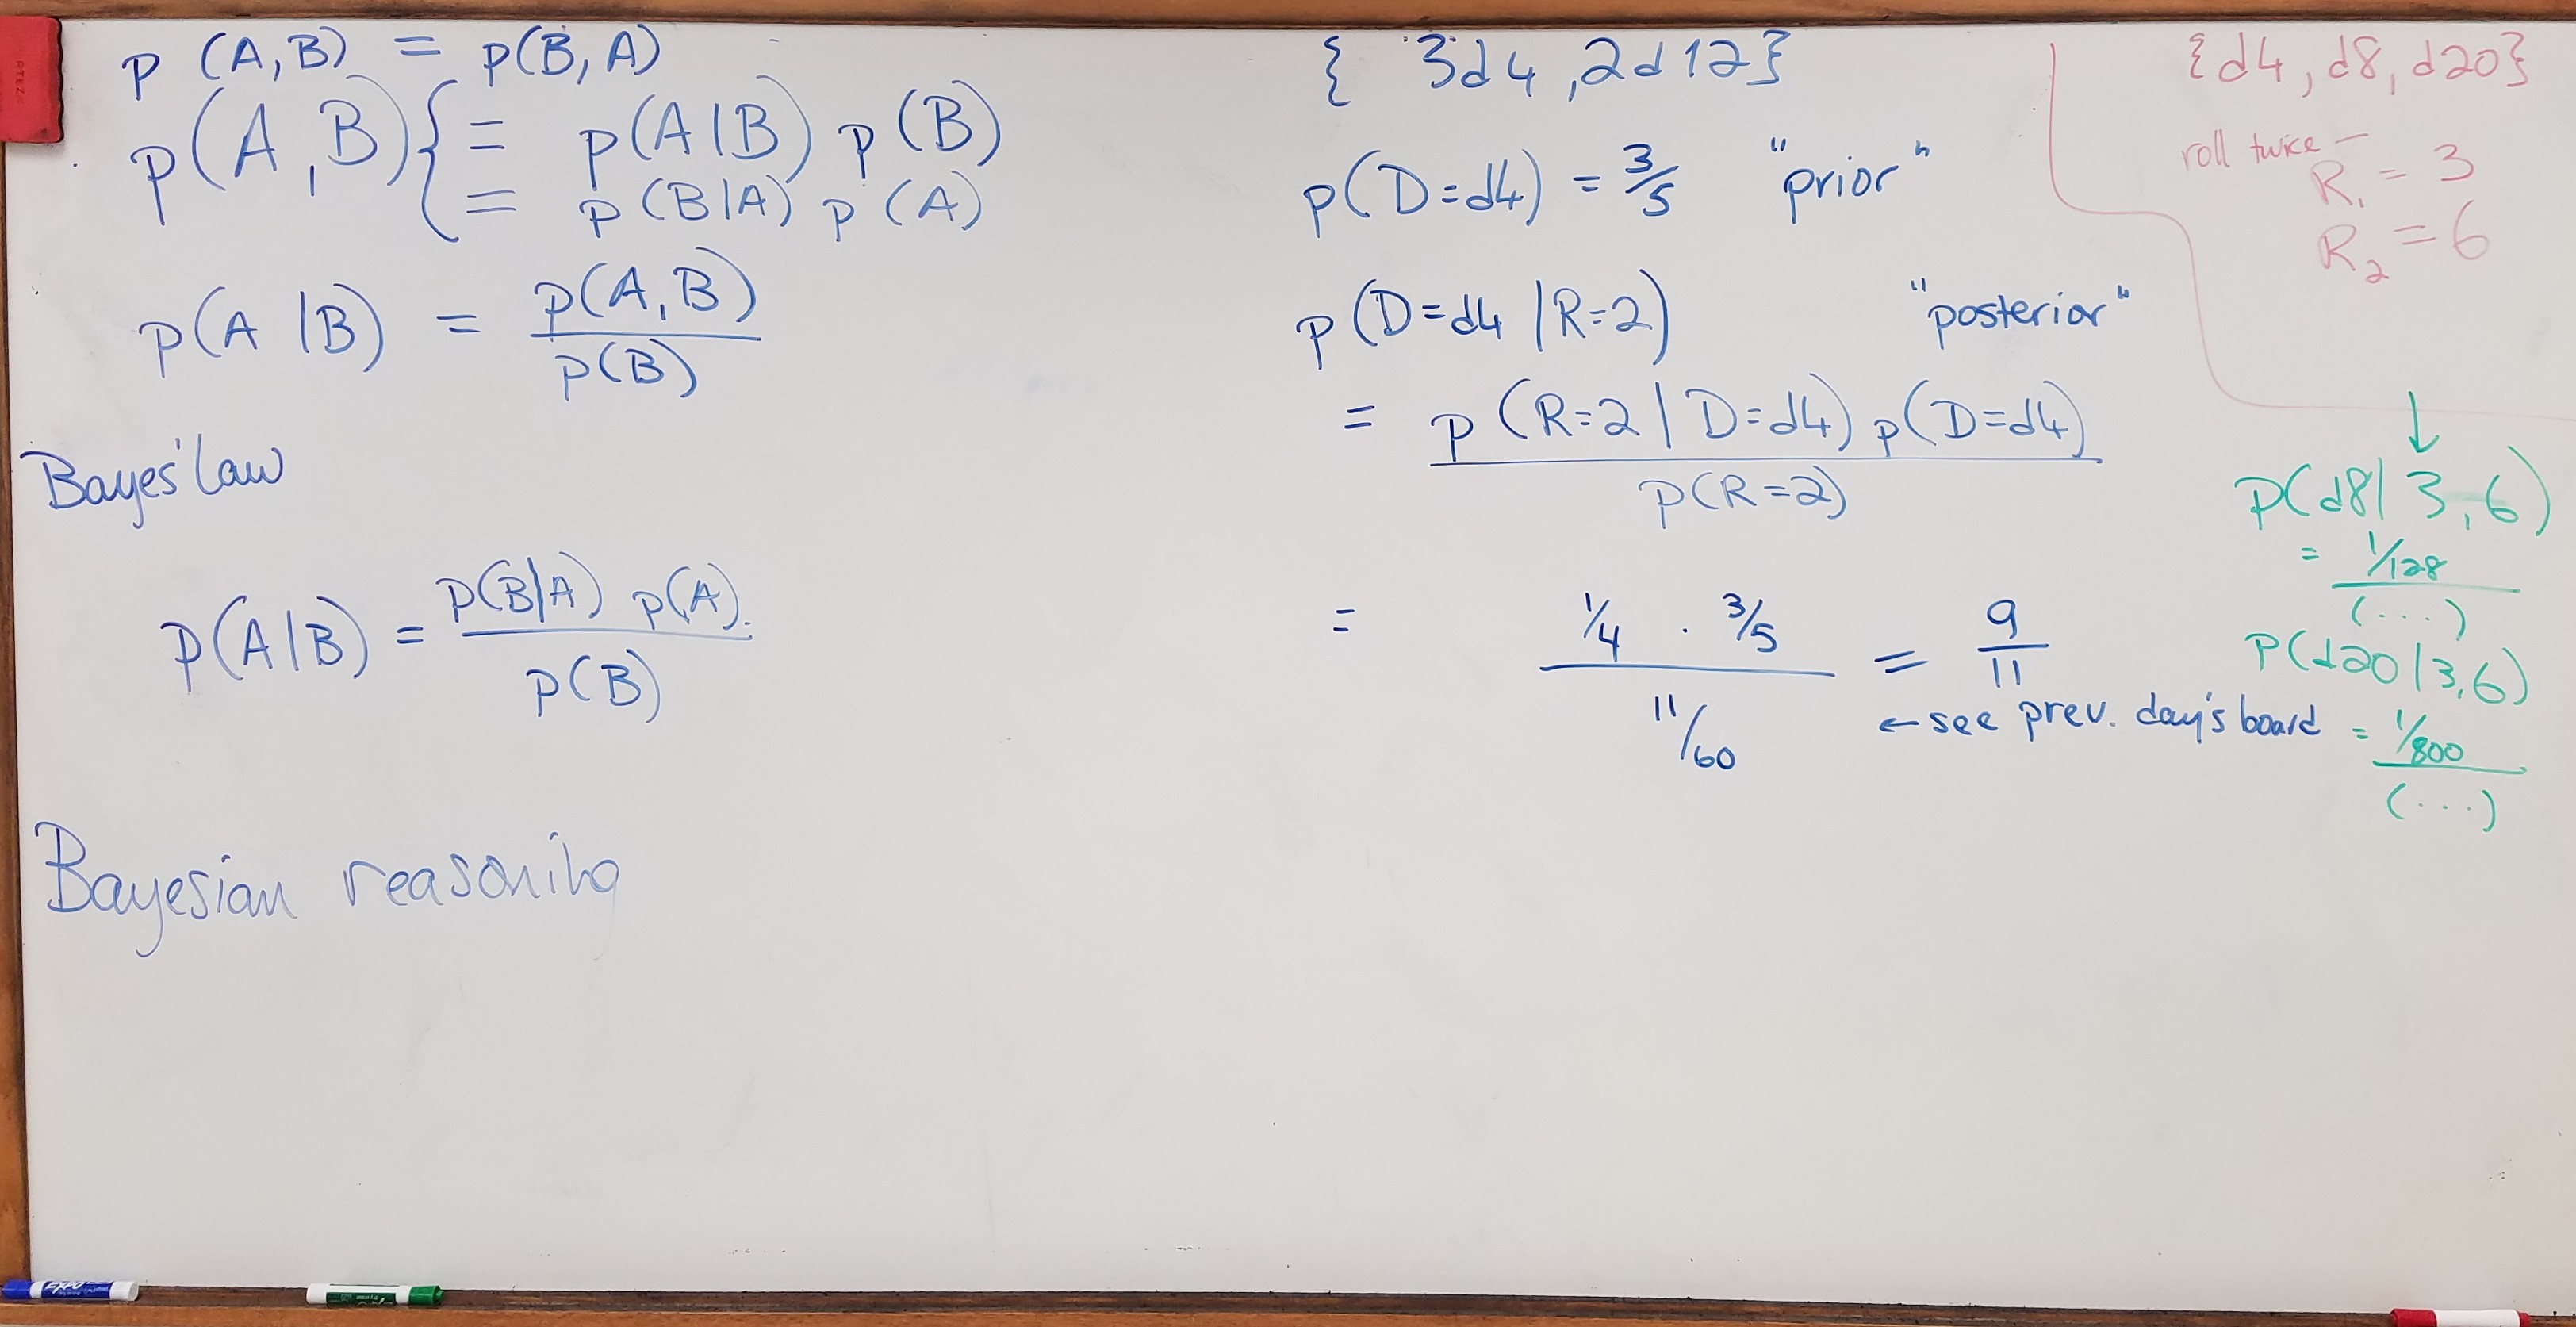 p (A,B) = p(B,A)
p(A,B) { = p(A|B) p(B)
= p(B|A) p(A)
p(A|B) = p(A,B)
p(B)
Bayes' law
p(A|B) = p(B|A) p(A).
p(B)
Bayesian reasoning
{ 3d4, 2d12}
p(D=d4) = 3/5 "prior"
p(D=d4 | R=2) "posterior"
= p(R=2 | D=d4) p(D=d4)
p(R=2)
= 1/4 · 3/5 = 9
11
11/60
← see prev. day's board
{d4, d8, d20}
roll twice –
R1 = 3
R2 = 6
↓
P(d8| 3,6)
= 1/128
(...)
P(d20|3,6)
= 1/800
(...)